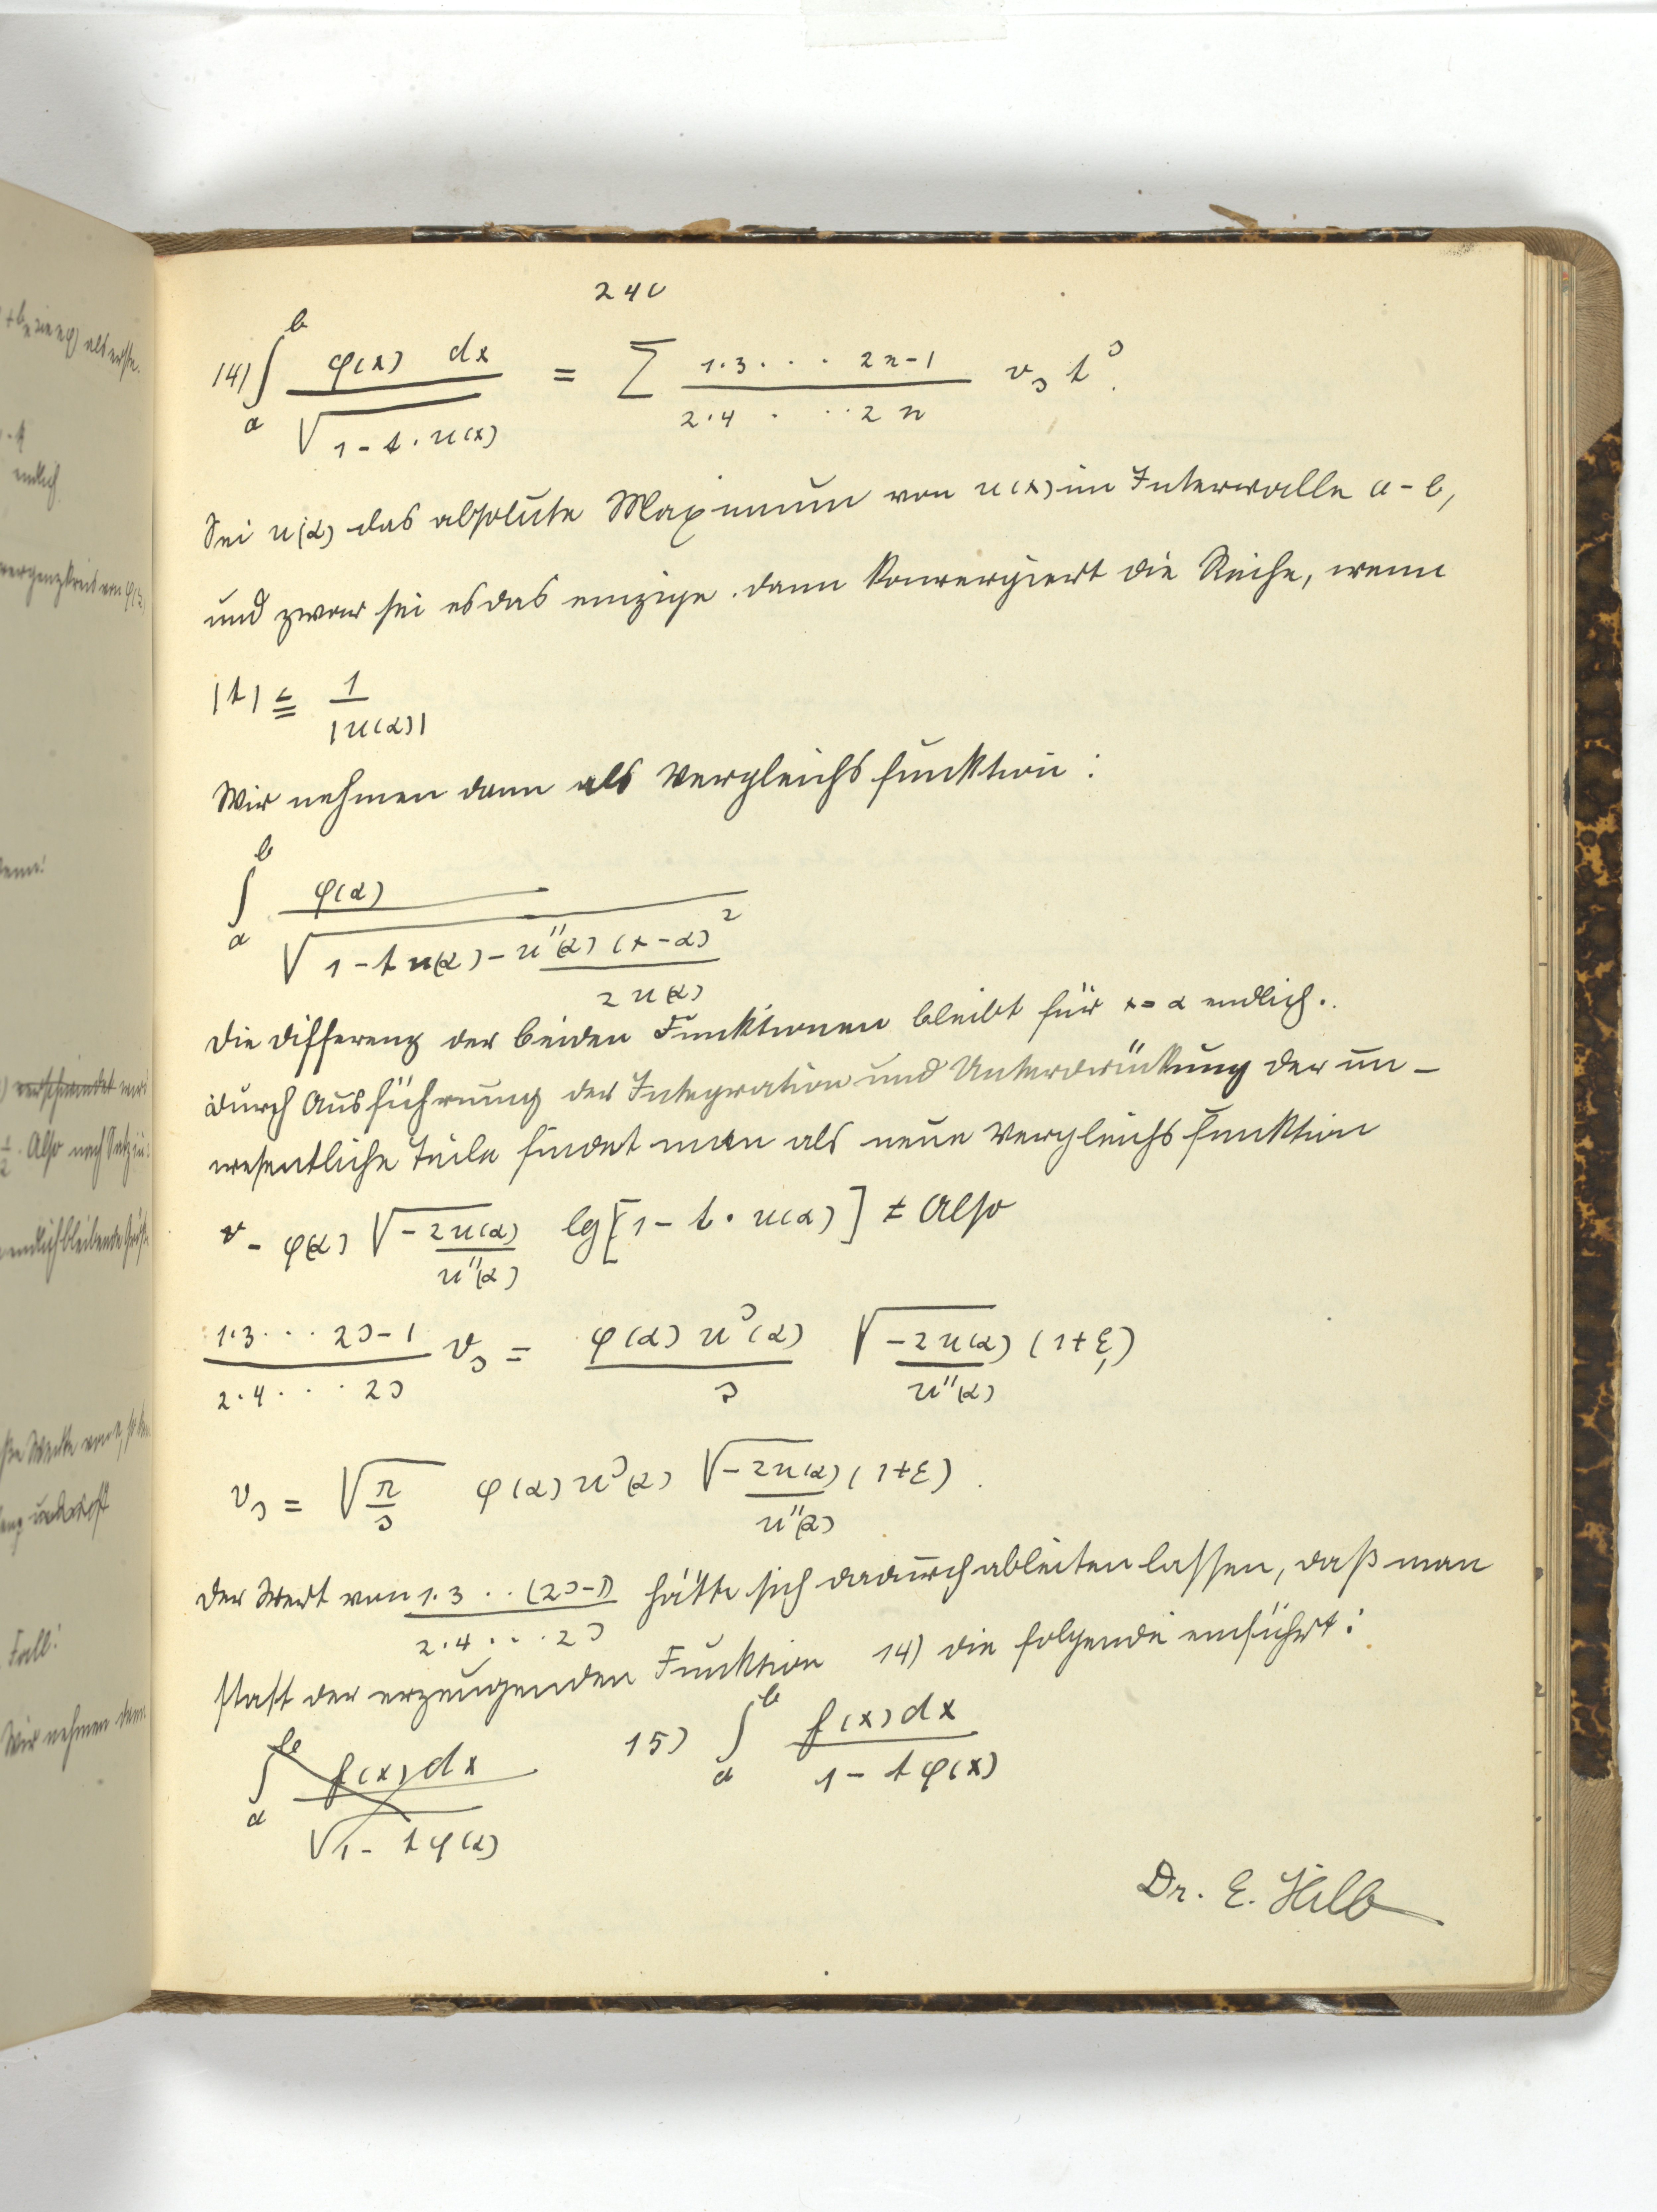 240
14) ∫_a^b φ(x) dx / √(1-t·u(x)) = Σ 1·3··· 2n-1 / 2·4···2n v_ν t^ν.
Sei u(α) das absolute Maximum von u(x) im Intervalle a-b,
und zwar sei es das einzige. dann konvergiert die Reihe, wenn
|t| ≦ 1/|u(α)|
Wir nehmen dann als Vergleichsfunktion:
∫_a^b φ(α) / √(1-t u(α) - u''(α)(x-α)²/2u(α))
Die Differenz der beiden Funktionen bleibt für x=α endlich.
Durch Ausführung der Integration und Unterdrückung der un-
wesentliche Teile findet man als neue Vergleichsfunktion
- φ(α) √(-2u(α)/u''(α)) lg[1-t·u(α)] Also
1·3··· 2ν-1 / 2·4··· 2ν v_ν = φ(α) u^ν(α)/ν √(-2u(α)/u''(α)) (1+ε₁)
v_ν = √(π/ν) φ(α) u^ν(α) √(-2u(α)/u''(α)) (1+ε).
Der Wert von 1·3··(2ν-1)/2·4···2ν hätte sich dadurch ableiten lassen, daß man
statt der erzeugenden Funktion 14) die folgende einführt:
∫_a^b f(x)dx / √(1-tφ(x)) 15) ∫_a^b f(x)dx / 1-tφ(x)
Dr. E. Hilb
+b_n sin nφ) als erste.
endlich
Also nach Satz
endlich bleibende
Fall:
Wir nehmen dann